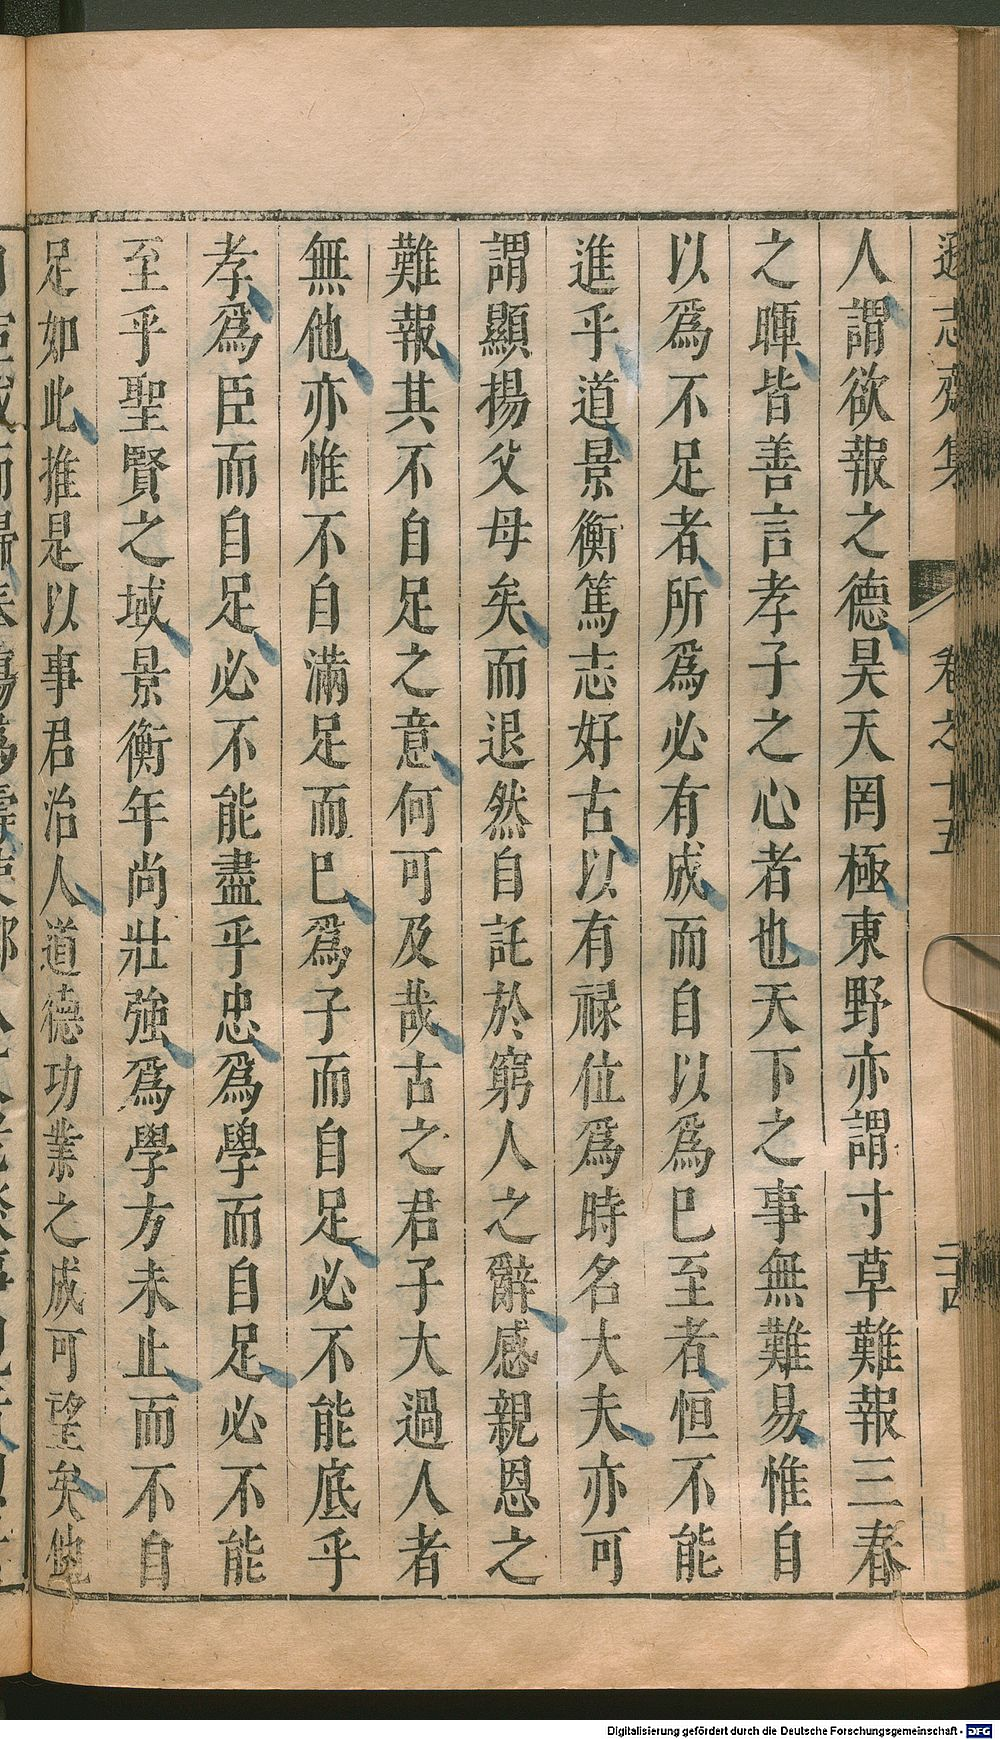 遜志齋集 卷之十五 二十四
人謂欲報之德昊天罔極東野亦謂寸草難報三春
之暉皆善言孝子之心者也天下之事無難易惟自
以爲不足者所爲必有成而自以爲巳至者恒不能
進乎道景衡篤志好古以有祿位爲時名大夫亦可
謂顯揚父母矣而退然自託於窮人之辭感親恩之
難報其不自足之意何可及哉古之君子大過人者
無他亦惟不自滿足而巳爲子而自足必不能底乎
孝爲臣而自足必不能盡乎忠爲學而自足必不能
至乎聖賢之域景衡年尚壯強爲學方未止而不自
足如此推是以事君治人道德功業之成可望矣他
Digitalisierung gefördert durch die Deutsche Forschungsgemeinschaft - DFG